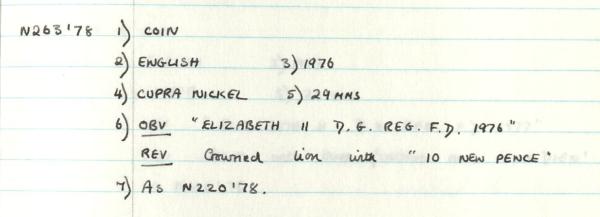 N263'78 1) COIN
2) ENGLISH 3) 1976
4) CUPRA NICKEL 5) 29 MMS
6) OBV "ELIZABETH II D.G. REG. F.D. 1976"
REV Crowned lion with "10 NEW PENCE"
7) AS N220'78.